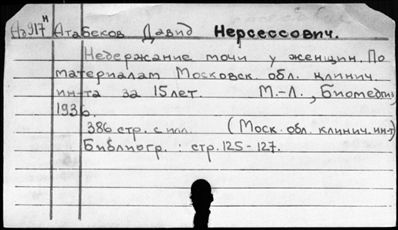 Атабеков Давид Нерсессович.
Недержание мочи у женщин. По
материалам Московск. обл. клинич.
ин-та за 15 лет. М.-Л., Биомедгиз,
1936.
386 стр. с илл. (Моск. обл. клинич. ин-т)
Библиогр.: стр. 125-127.